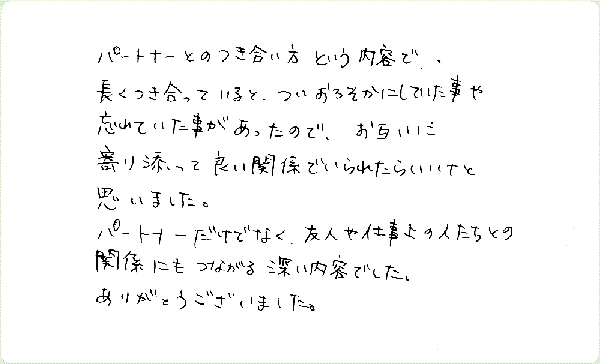 パートナーとのつき合い方という内容で、
長くつき合っていると、ついおろそかにしていた事や
忘れていた事があったので、お互いに
寄り添って良い関係でいられたらいいナと
思いました。
パートナーだけでなく、友人や仕事上の人たちとの
関係にもつながる深い内容でした。
ありがとうございました。